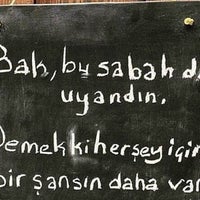 Bak, bu sabah d
uyandın.
Demek ki herşey için
bir şansın daha var